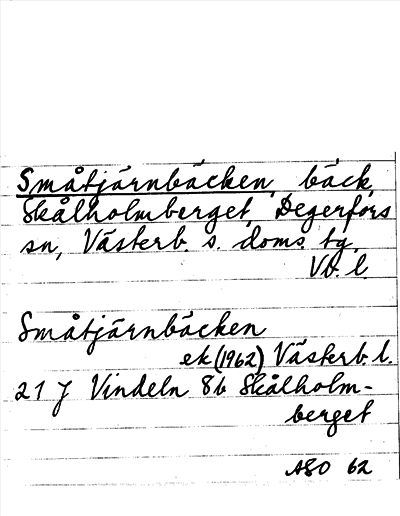 Småtjärnbäcken, bäck,
Skålholmberget, Degerfors
sn, Västerb. s. doms. tg.
Vb. l.
Småtjärnbäcken
ek (1962) Västerb. l.
21 J Vindeln 8b Skålholm-
berget
ASO 62